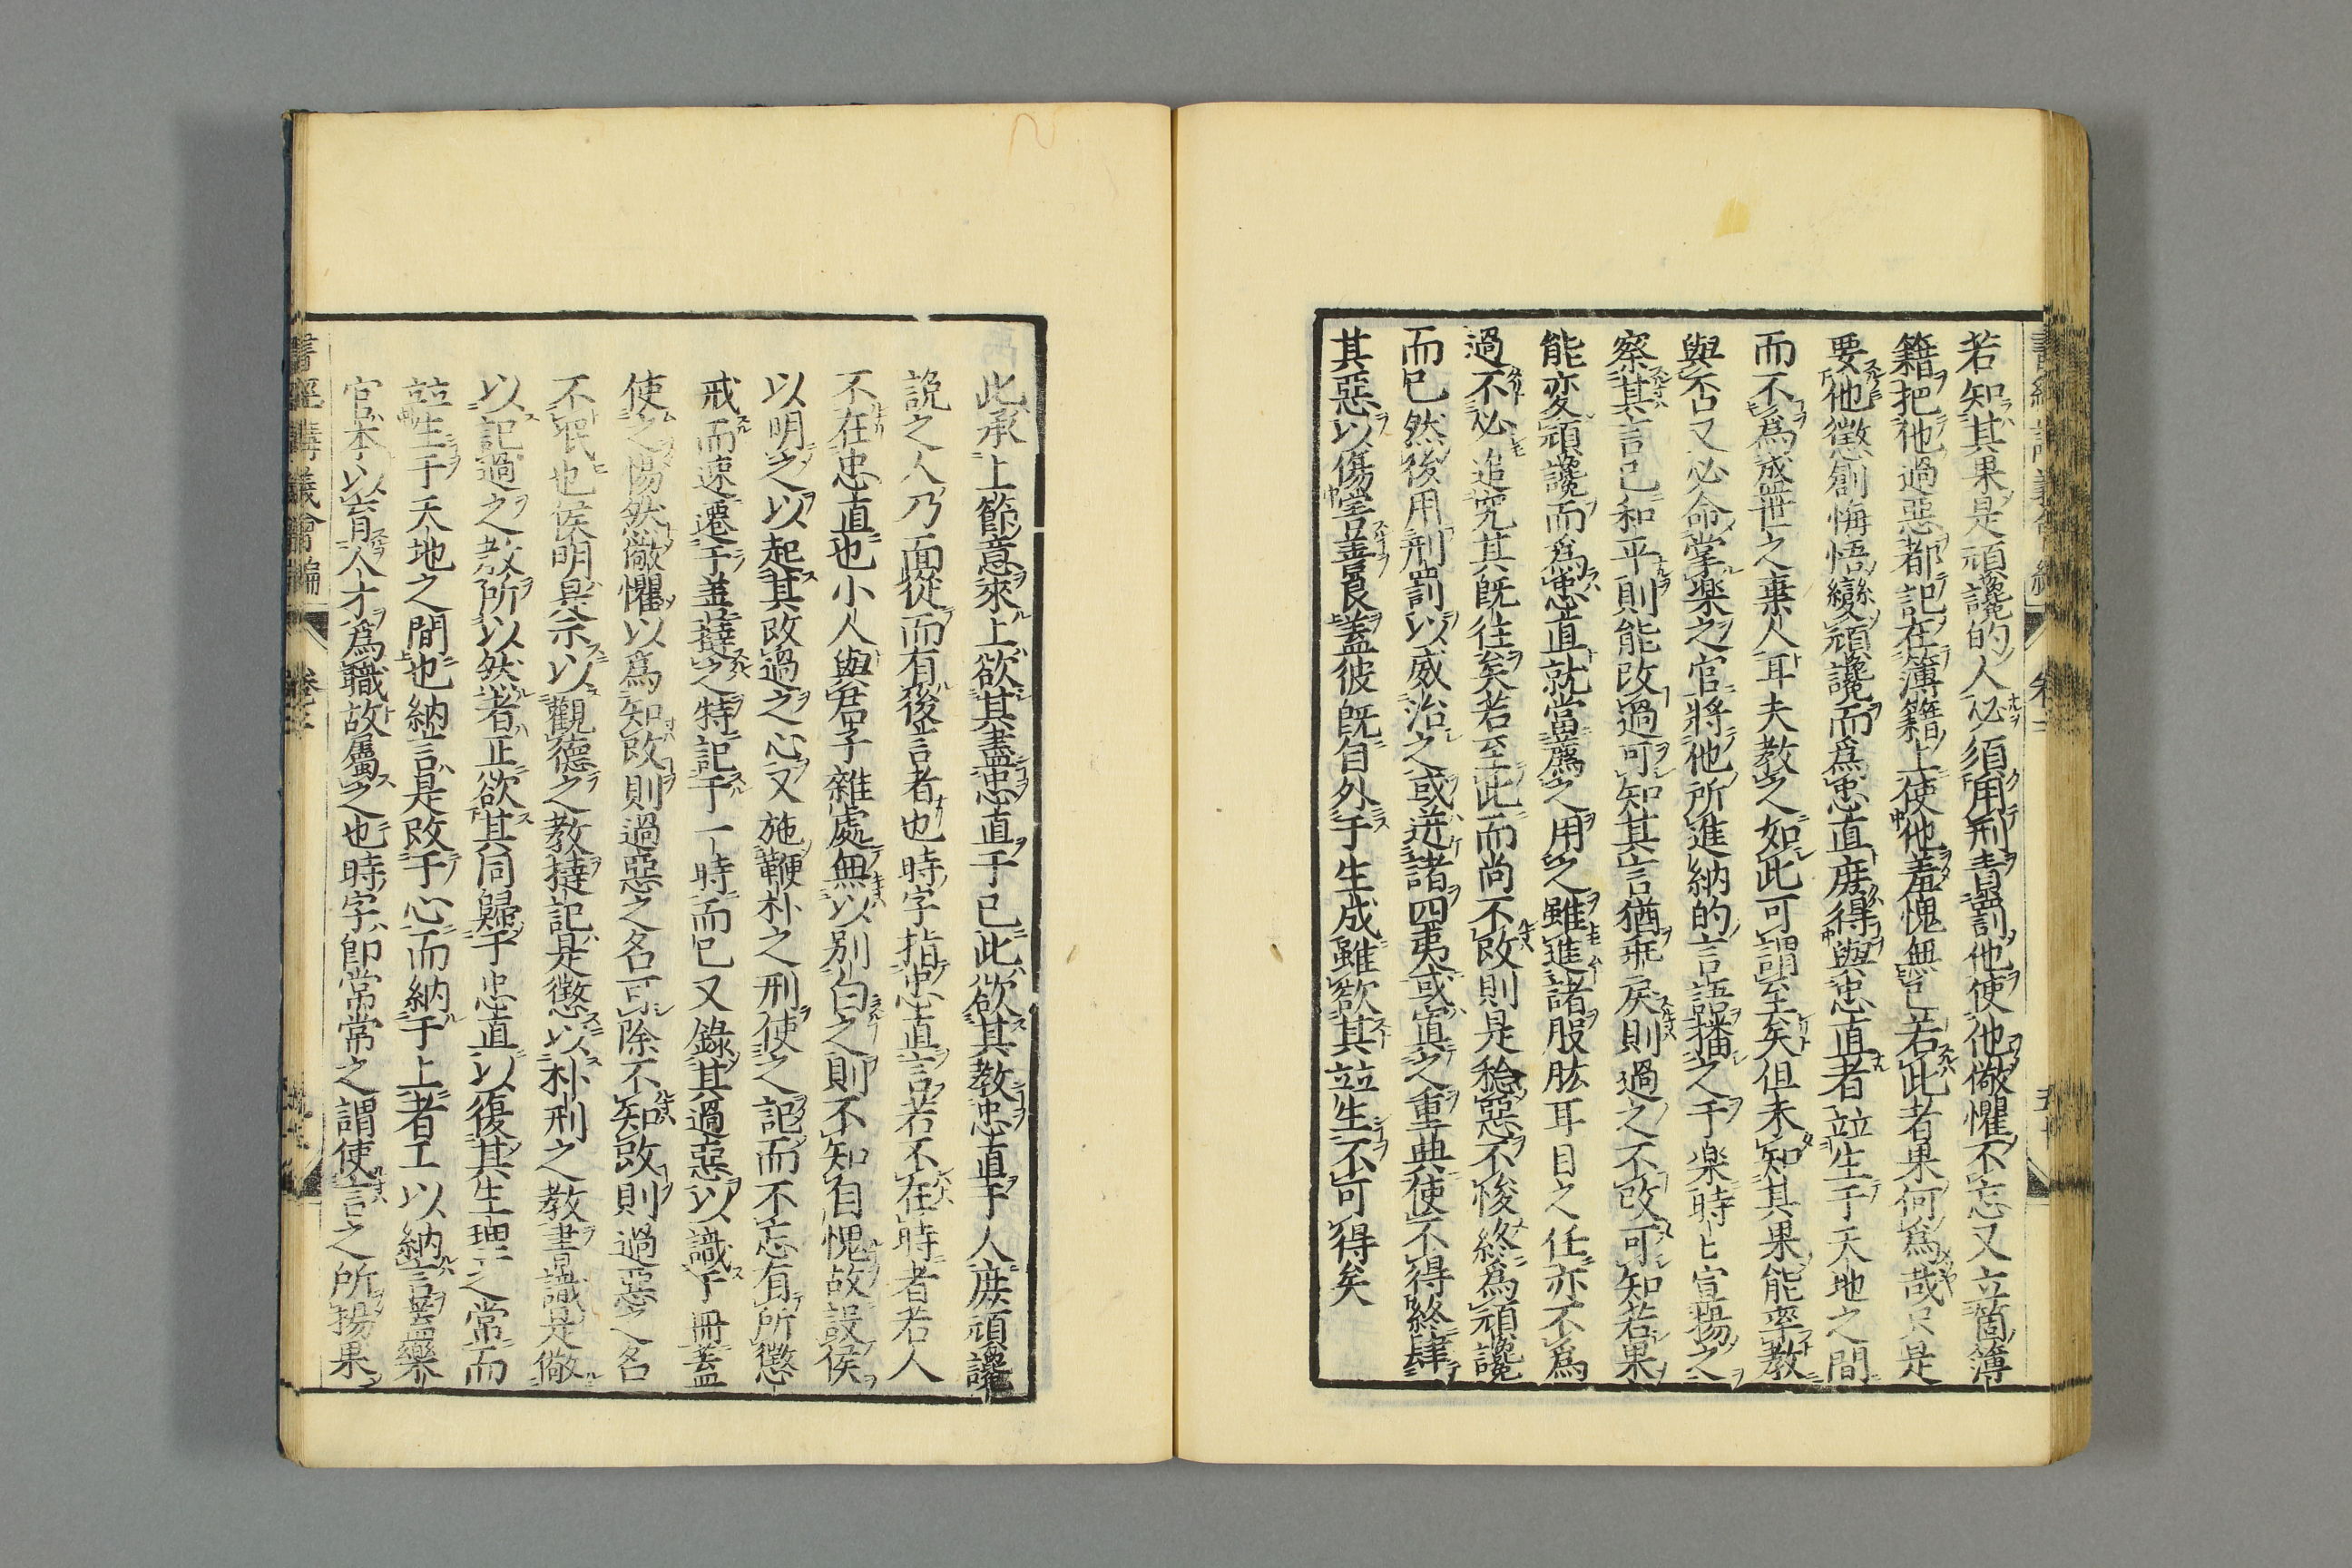 若知其果是頑讒的人必須用刑責罰他使他儆懼不忘又立箇簿
籍把他過惡都記在簿籍上使他羞愧無已若此者果何為哉只是
要他懲創悔悟變頑讒而為忠直庶得與忠直者竝生于天地之間
而不為盛世之棄人耳夫教之如此可謂至矣但未知其果能率教
與否又必命掌楽之官將他所進納的言語播之于楽時〻宣揚之
察其言已和平則能改過可知其言猶乖戾則過之不改可知若果
能変頑讒而為忠直就當薦之用之雖進諸股肱耳目之任亦不為
過不必追究其既往矣若至此而尚不改則是稔惡不悛終為頑讒
而已然後用刑罰以威治之或迸諸四夷或寘之重典使不得終肆
其惡以傷害善良蓋彼既自外于生成雖欲其竝生不可得矣
此承上節意來上欲其盡忠直于己此欲其教忠直于人庶頑讒
說之人乃面從而有後言者也時字指忠直言若不在時者若人
不在忠直也小人與君子雜處無以別白之則不知自愧故設侯
以明之以起其改過之心又施鞭朴之刑使之記而不忘有所懲
戒而速遷于善撻之特記于一時而已又錄其過惡以識于冊蓋
使之惕然儆懼以為知改則過惡之名可除不知改則過惡之名
不泯也侯明是示以觀德之教撻記是懲以朴刑之教書識是儆
以記過之教所以然者正欲其同歸于忠直以復其生理之常而
竝生于天地之間也納言是改于心而納于上者工以納言蓋樂
官本以育人才為職故屬之也時字即常常之謂使言之所揚果
書經講義會編 卷之二